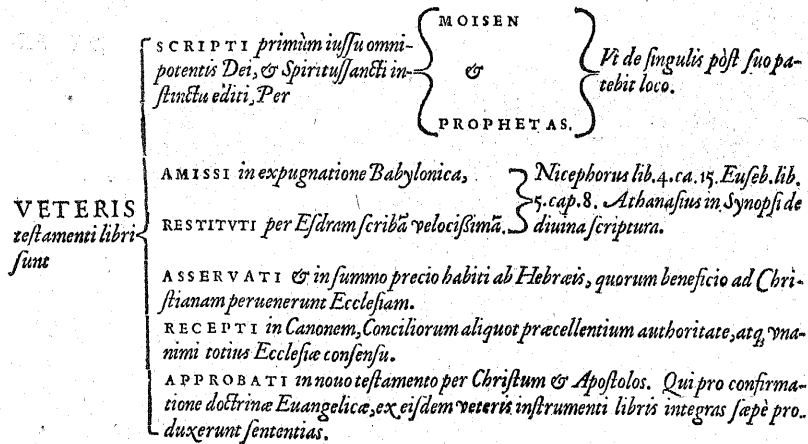 VETERIS
testamenti libri
sunt
SCRIPTI primùm iussu omni-
potentis Dei, & Spiritussancti in-
stinctu editi, Per
MOISEN
&
PROPHETAS.
Vt de singulis pòst suo pa-
tebit loco.
AMISSI in expugnatione Babylonica,
RESTITVTI per Esdram scribã velocißimã.
Nicephorus lib.4.ca.15. Euseb. lib.
5.cap.8. Athanasius in Synopsi de
diuina scriptura.
ASSERVATI & in summo precio habiti ab Hebræis, quorum beneficio ad Chri-
stianam peruenerunt Ecclesiam.
RECEPTI in Canonem, Conciliorum aliquot præcellentium authoritate, atq; vna-
nimi totius Ecclesiæ consensu.
APPROBATI in nouo testamento per Christum & Apostolos. Qui pro confirma-
tione doctrinæ Euangelicæ, ex eisdem veteris instrumenti libris integras sæpè pro-
duxerunt sententias.